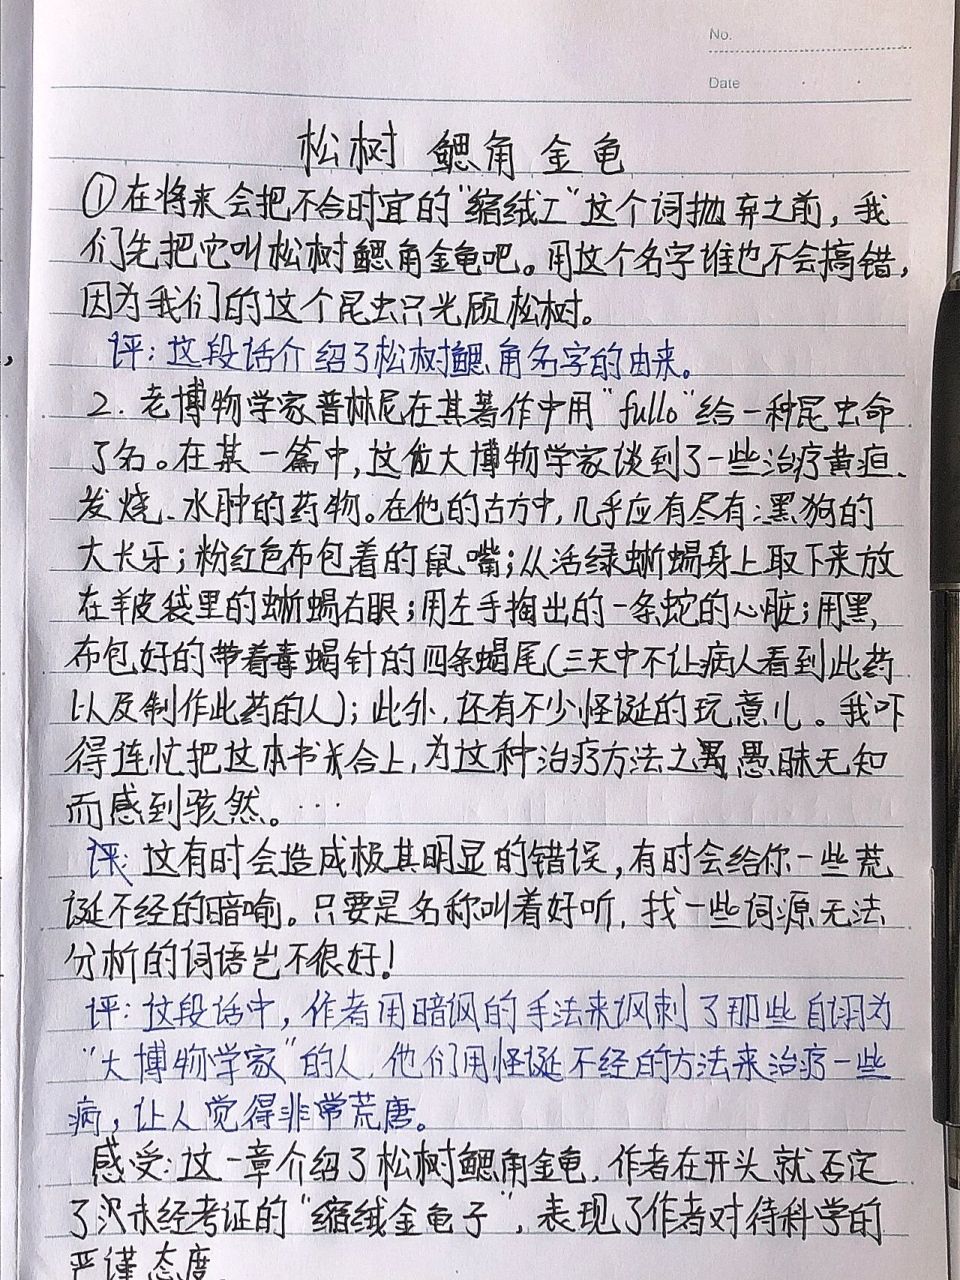 No.
Date
松树 鳃角 金龟
①在将来会把不合时宜的“缩绒工”这个词抛弃之前，我
们先把它叫松树鳃角金龟吧。用这个名字谁也不会搞错，
因为我们的这个昆虫只光顾松树。
评：这段话介绍了松树鳃角名字的由来。
2．老博物学家普林尼在其著作中用“fullo”给一种昆虫命
了名。在某一篇中，这位大博物学家谈到了一些治疗黄疸、
发烧、水肿的药物。在他的古方中，几乎应有尽有：黑狗的
大长牙；粉红色布包着的鼠嘴；从活绿蜥蜴身上取下来放
在羊皮袋里的蜥蜴右眼；用左手掏出的一条蛇的心脏；用黑
布包好的带着毒蝎针的四条蝎尾（三天中不让病人看到此药
以及制作此药的人）；此外，还有不少怪诞的玩意儿。我吓
得连忙把这本书合上，为这种治疗方法之愚昧无知
而感到骇然。…
评：这有时会造成极其明显的错误，有时会给你一些荒
诞不经的暗喻。只要是名称叫着好听，找一些词源无法
分析的词语岂不很好！
评：这段话中，作者用暗讽的手法来讽刺了那些自诩为
“大博物学家”的人，他们用怪诞不经的方法来治疗一些
病，让人觉得非常荒唐。
感受：这一章介绍了松树鳃角金龟，作者在开头就否定
了没未经考证的“缩绒金龟子”，表现了作者对待科学的
严谨态度